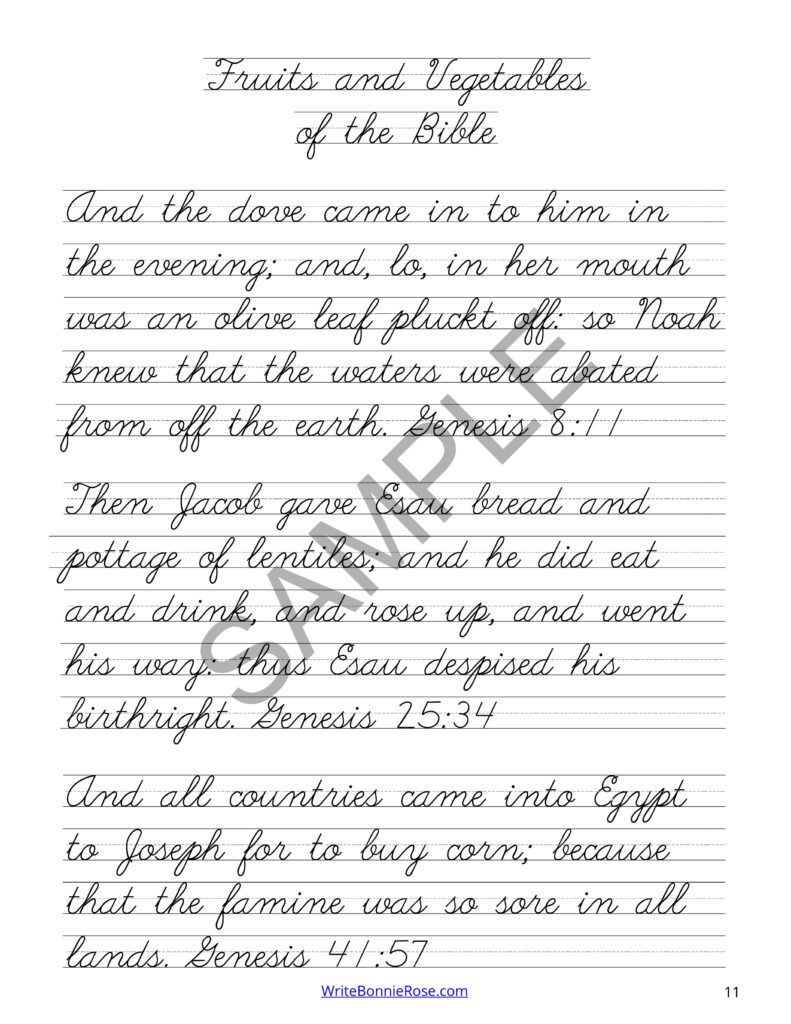 Fruits and Vegetables
of the Bible
And the dove came in to him in
the evening; and, lo, in her mouth
was an olive leaf pluckt off: so Noah
knew that the waters were abated
from off the earth. Genesis 8:11
Then Jacob gave Esau bread and
pottage of lentiles; and he did eat
and drink, and rose up, and went
his way: thus Esau despised his
birthright. Genesis 25:34
And all countries came into Egypt
to Joseph for to buy corn; because
that the famine was so sore in all
lands. Genesis 41:57
SAMPLE
WriteBonnieRose.com
11